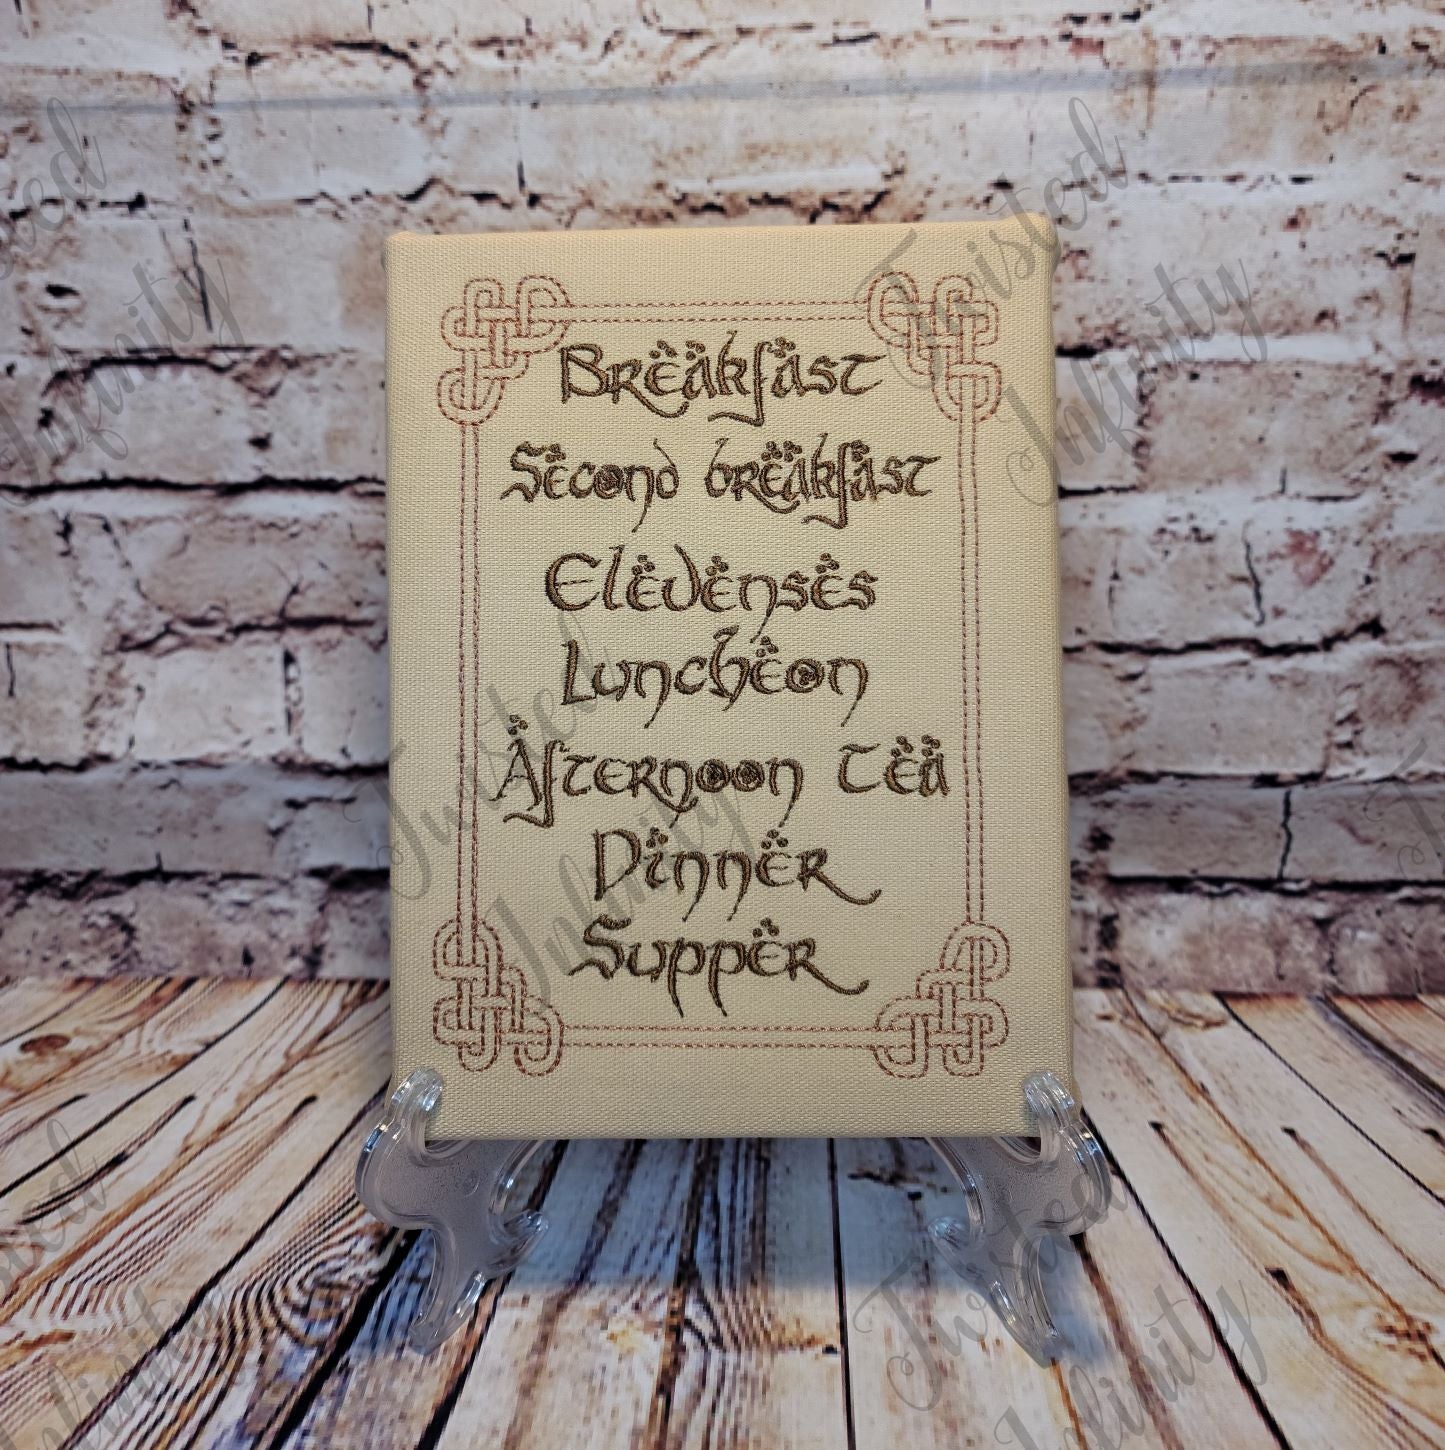 Breakfast
Second breakfast
Elevenses
Luncheon
Afternoon tea
Dinner
Supper
Twisted
Infinity
Twisted
Infinity
Twisted
Infinity
Twisted
Infinity